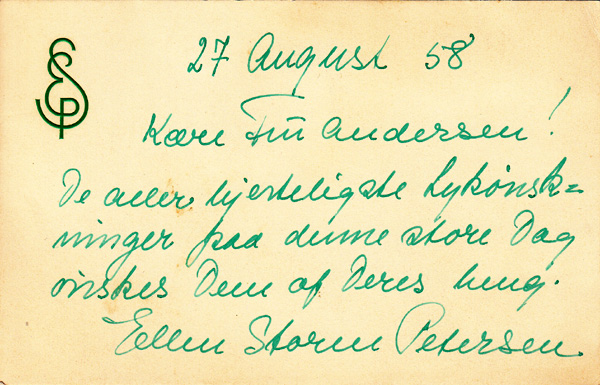 ESP
27 August 58
Kære Fru Andersen!
De aller hjerteligste Lykønsk=
ninger paa denne store Dag
ønskes Dem af Deres
Ellen Storm Petersen.